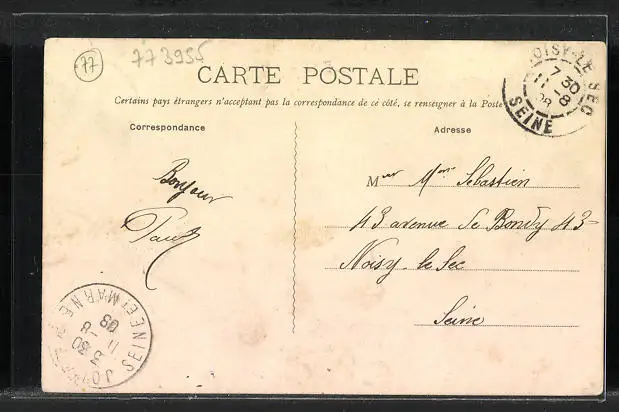 77
773955
CARTE POSTALE
Certains pays étrangers n'acceptant pas la correspondance de ce côté, se renseigner à la Poste
Correspondance
Adresse
NOISY-LE-SEC
7 30
11 -8
SEINE
Bonjour
Mer Mme Sébastien
43 avenue de Bondy 43
Noisy-le Sec
Seine
SEINE ET MARNE
5 30
11 -8
09